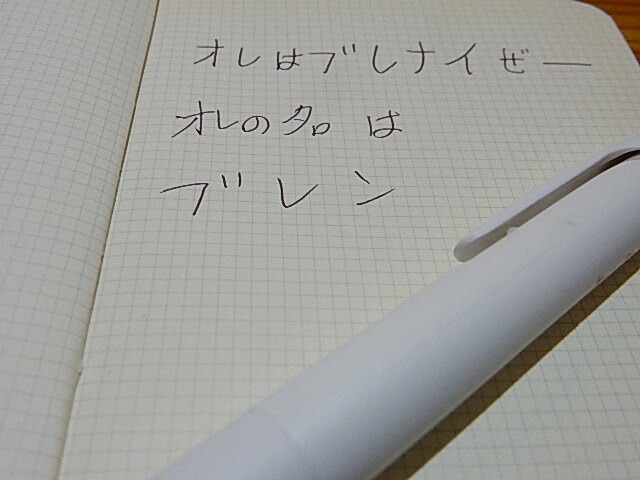 オレはブレナイぜー
オレの名は
ブレン